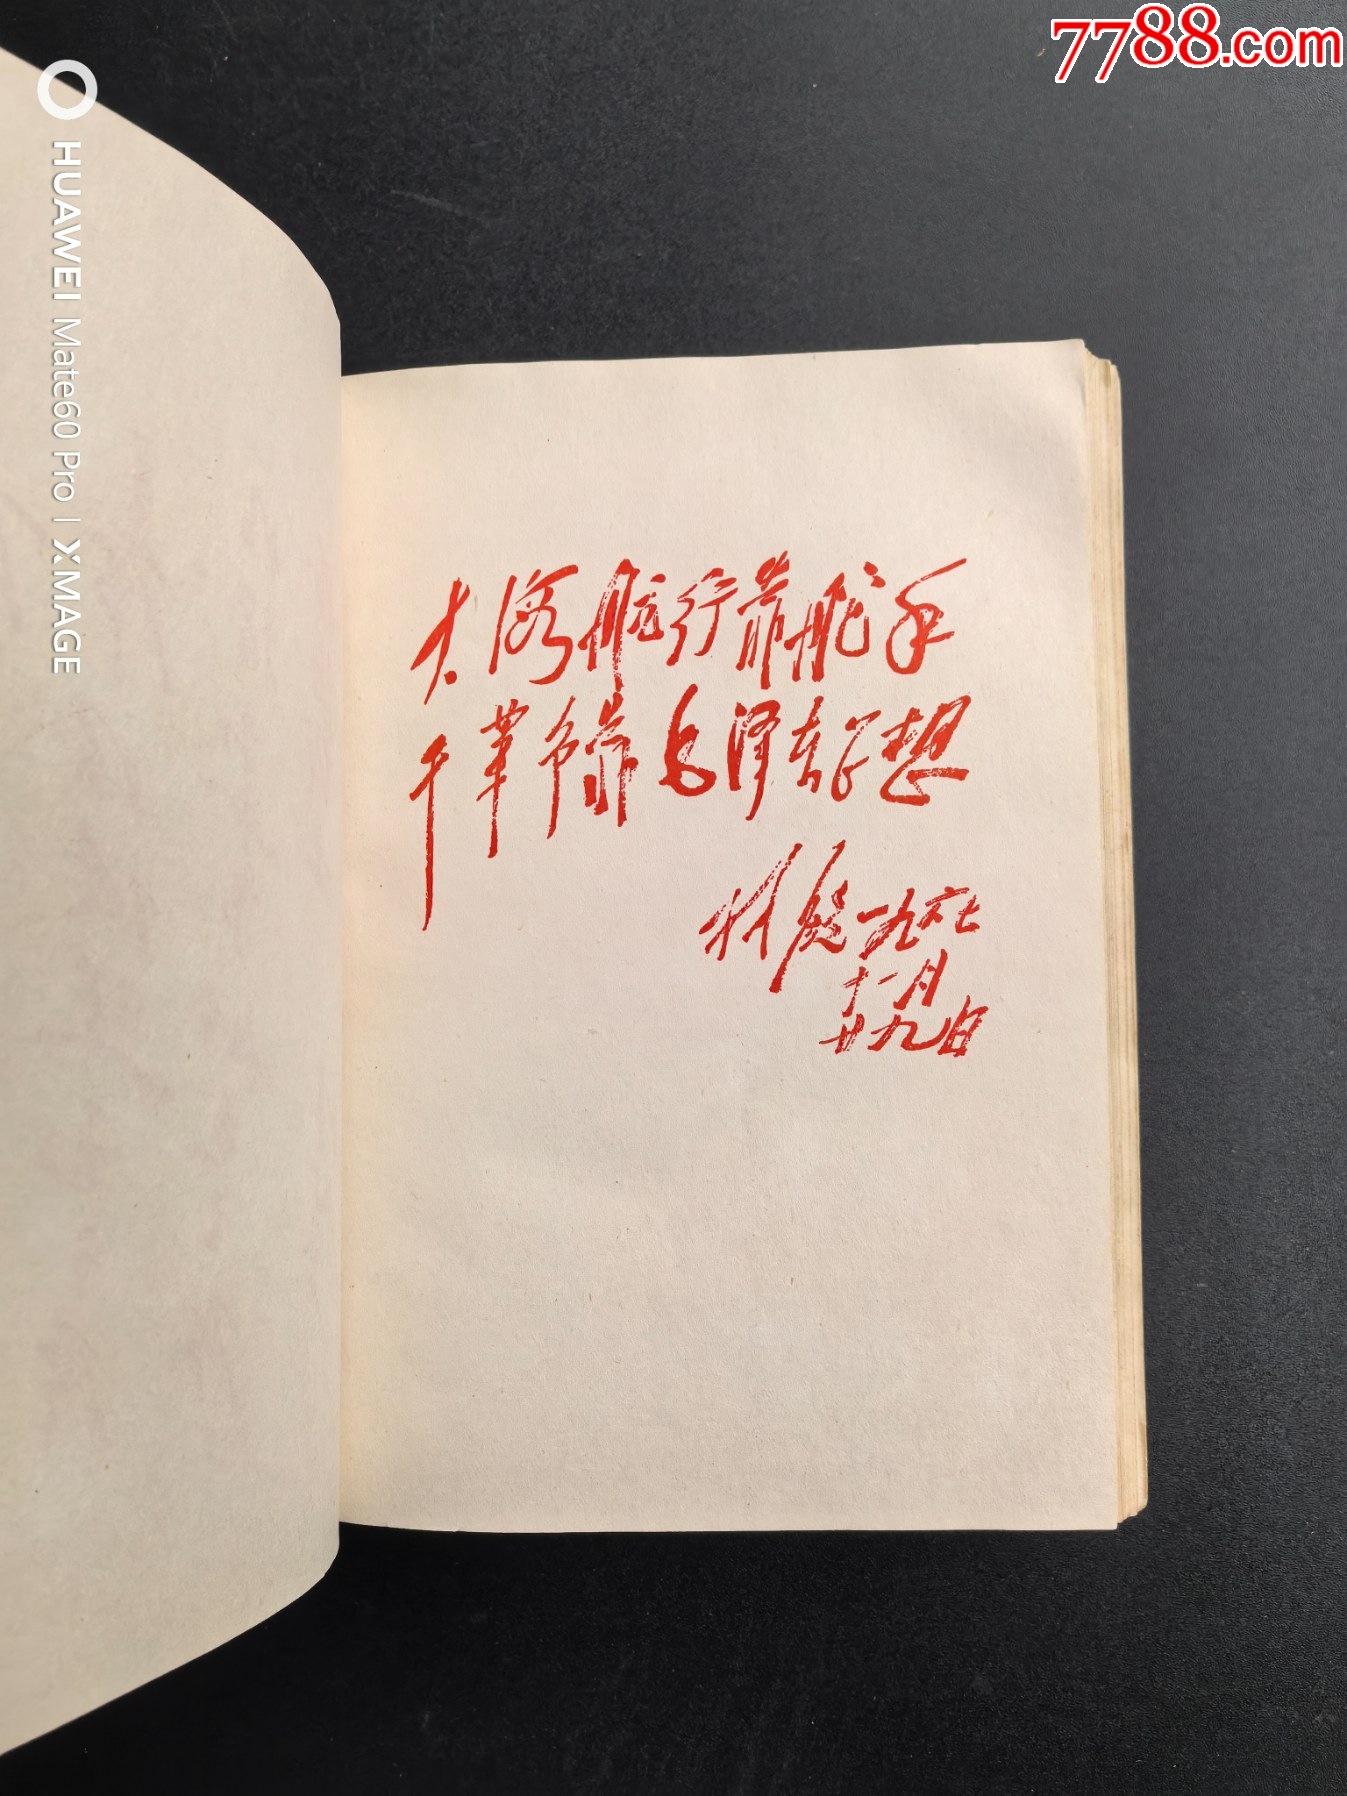 7788.com
HUAWEI Mate60 Pro | XMAGE
大海航行靠舵手
干革命靠毛泽东思想
林彪一九六七
十一月
廿九日